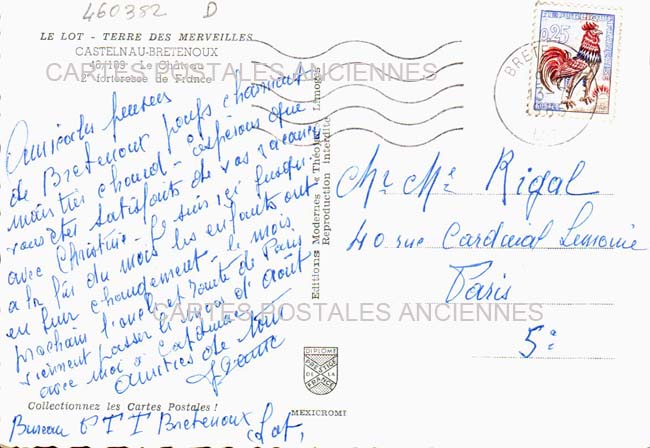 460382 D
LE LOT - TERRE DES MERVEILLES
CASTELNAU-BRETENOUX
46/109 Le Château
2e forteresse de France
CARTES POSTALES ANCIENNES
Amicales pensées
de Bretenoux pays charmant
mais très chaud - espérons que
vous êtes satisfaits de vos vacances
avec Christine - je suis ici jusqu'
à la fin du mois les enfants ont
eu leur changement - le mois
prochain l'oncle et tante de Paris
viennent passer le mois d'août
avec moi à
amitiés de tous
Jeanne
Bureau PTT Bretenoux
Lot,
Collectionnez les Cartes Postales !
Editions Modernes « Théojac » Limoges
Reproduction Interdite
DIPLOME
PRESTIGE
DE LA
FRANCE
MEXICROMI
REPUBLIQUE FRANCAISE
0,25
POSTES
BRETENOUX
LOT
Mr Me Rigal
40 rue Cardinal Lemoine
Paris
CARTES POSTALES ANCIENNES
5e